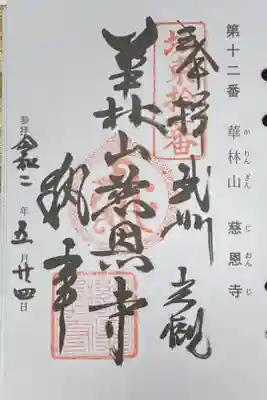 第十二番　華林山　慈恩寺
かりんざん　じおんじ
奉拝　武州
華林山慈恩寺
執事
坂東拾弐番
参拝　令和二年五月廿四日